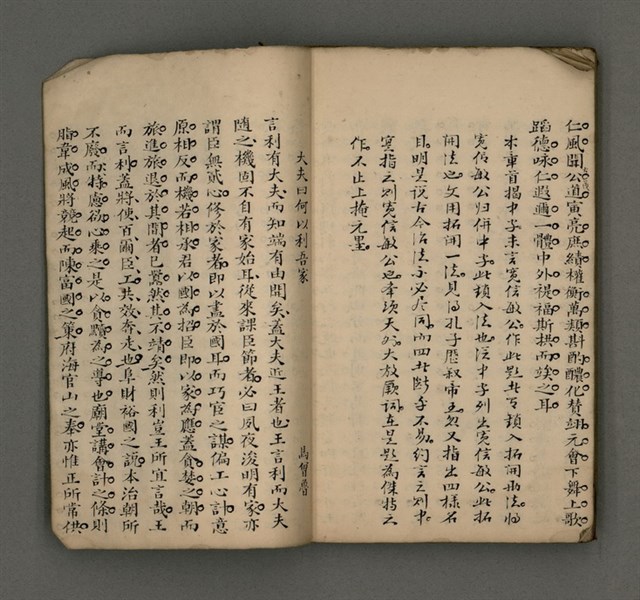 仁風開公道寅亮庶績權衡萬類斟酌醲化贊翊元會下舞上歌
蹈德咏仁遐邇一體中外禔福斯拱而竢之耳
本重首揭中字未言寬信敏公作此題者頂入拓開兩法將
寬信敏公歸併中字此頓入法也從中字列出寬信敏公此拓
開法也文用拓開一法見得孔子歷叙帝王忽又指出四樣名
目明是说古今治法不必盡同而四者斷乎不易約言之則中
實指之則寬信敏公也牽頃天外大放厥詞在是題為傑特之
作不止上掩元墨
大夫曰何以利吾家
馬曾魯
言利有大夫而知端有由開矣蓋大夫近王者也王言利而大夫
隨之機固不自有家始耳從來課臣節者必曰夙夜浚明有家亦
謂臣無貳心修於家者即以書於國耳而巧宦之謀偏工心計意
原相反而機若相承君以國為招臣即以家為應蓋貪婪之朝而
旅進旅退於其間者已驚然其不靖矣然則利宣王所宜言哉王
而言利蓋將使百爾臣工共效奔走也阜財裕國之謨本治朝所
不廢而特慮欲心乘之是以貪黷為之導也廟堂講會計之條則
脂韋成風將競起而陳富國之策府海官山之奏亦惟正所常供